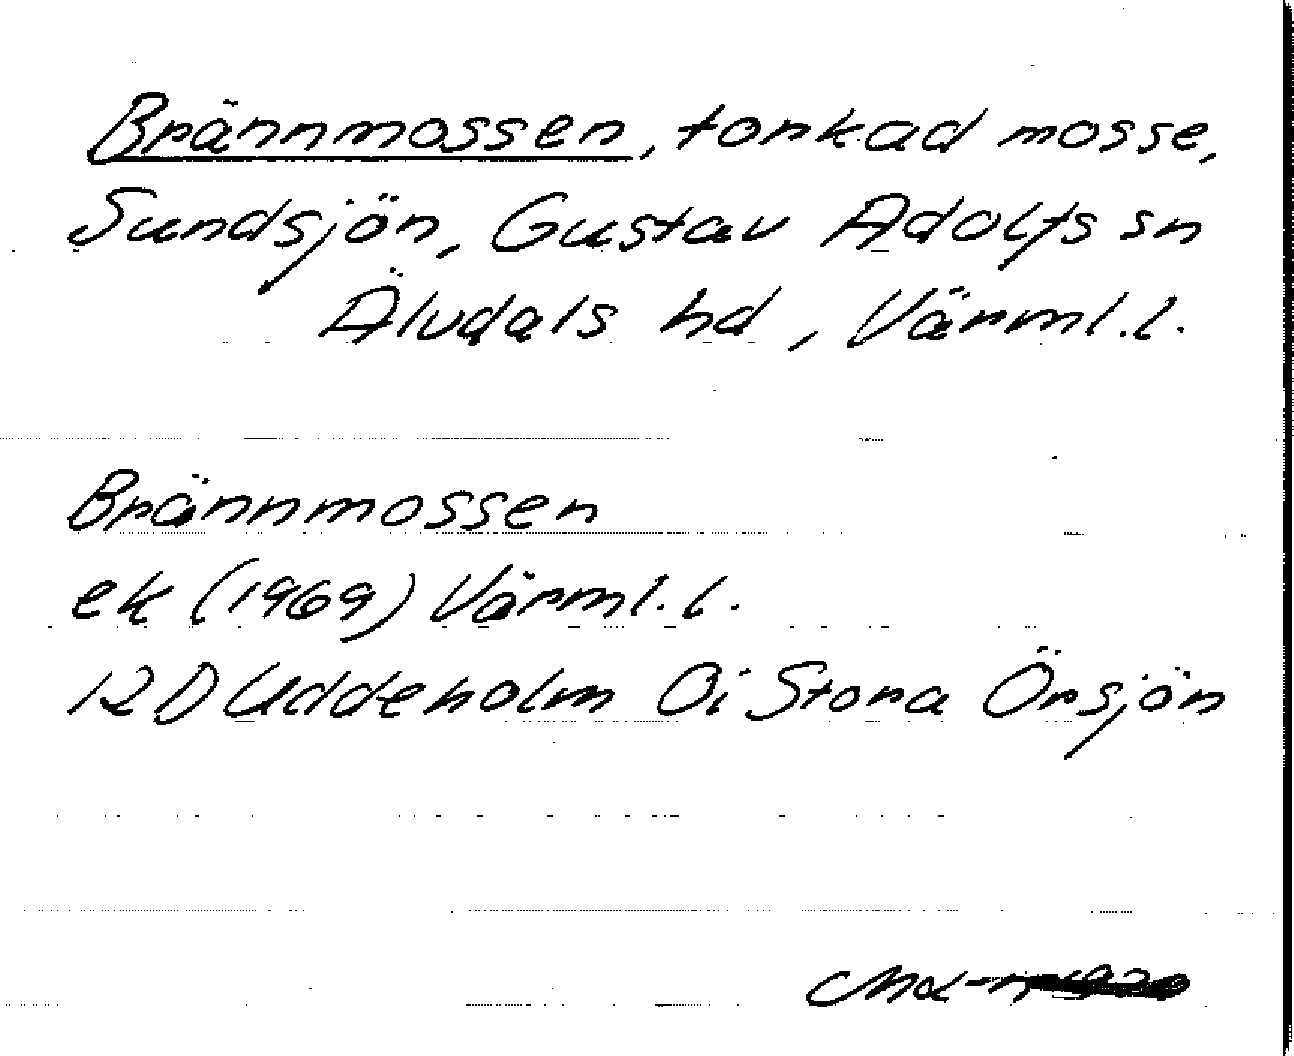 Brännmossen, torkad mosse,
Sundsjön, Gustav Adolfs sn
Älvdals hd, Värml.l.
Brännmossen
ek (1969) Värml.l.
12D Uddeholm Oi Stora Örsjön